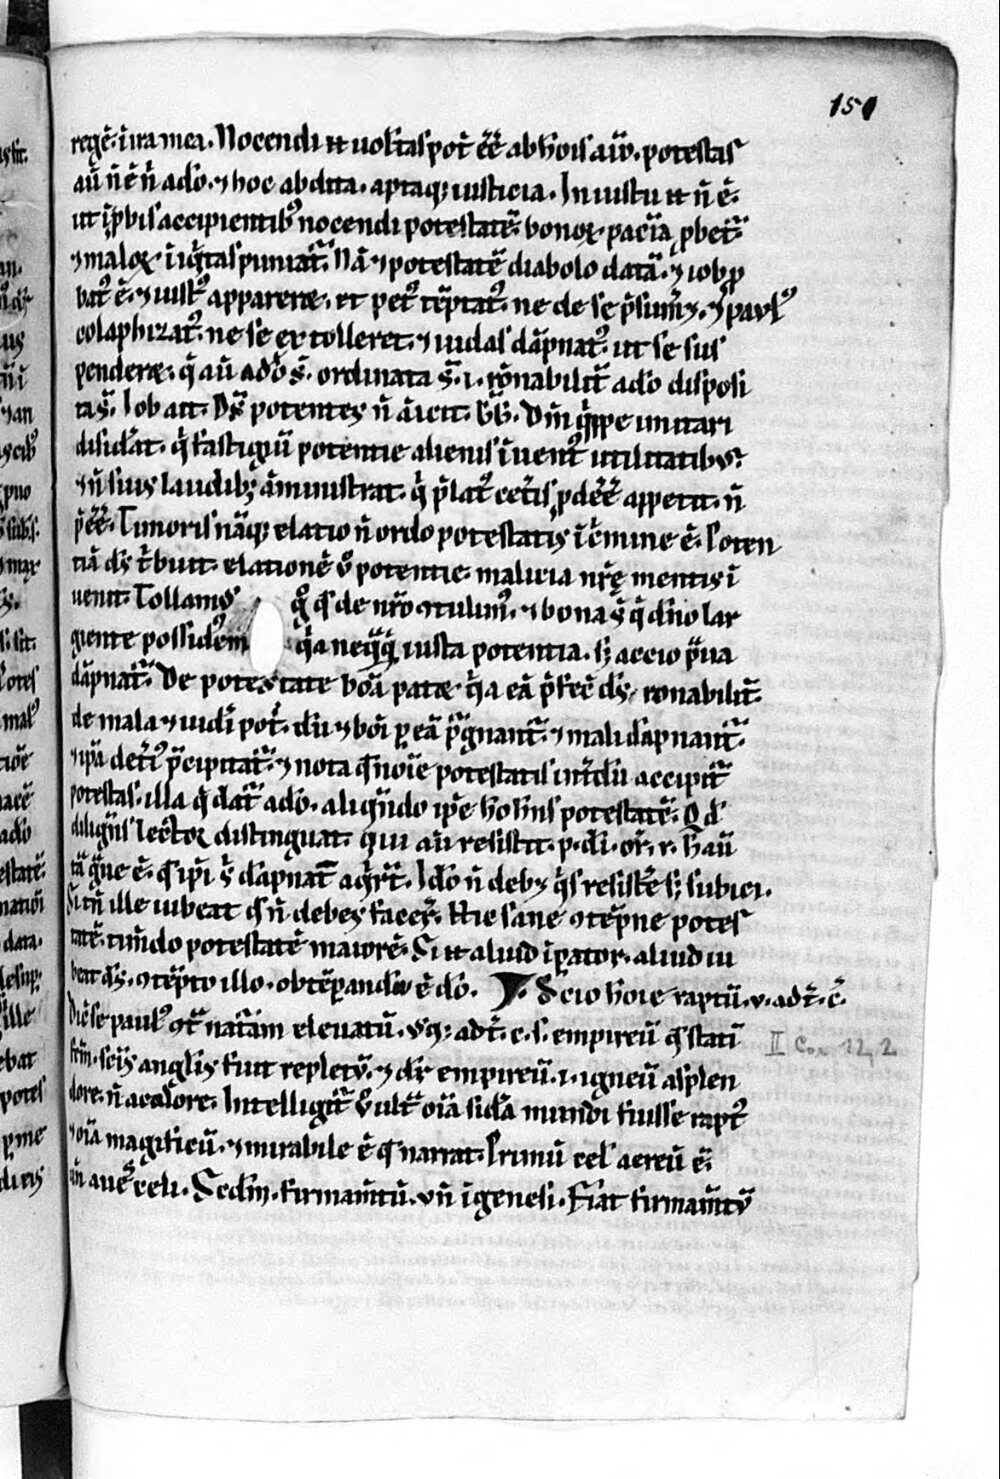 151
regē. ī ira mea. Nocendi ů uolūtas pot̄ ēē ab hoīs aīo. potestas
aū n̄ ē n̄ a dō. ⁊ hoc abdita. aptaq; iusticia. In iustu ů n̄ ē.
ut īp̄bis accipientib; nocendi potestatē. bonoꝝ pacīa ꝓbet᷑.
⁊ maloꝝ īiq̄tas puniat᷑. Nā ⁊ potestatē diabolo datā. ⁊ iob ꝓ
bat᷒ ē. ⁊ iust᷒ apparerꝫ. et pet᷒ tēptat᷒. ne de se p̄sumēꝫ. ⁊ paul᷒
colaphizat᷒. ne se extolleret. ⁊ iudas dāpnat᷒. ut se sus
penderꝫ. q̄ aū a dō s̄. ordinata s̄. .i. rōnabilit᷑ a dō disposi
ta s̄. Iob ait. D̄s potentes n̄ aīcit. GG. Dm̄ q̄ppe imitari
disid̄at. q̄ fastigiū potentie alienis īuent᷒ utilitatib;
⁊ n̄ suis laudib; āministrat. q̄ p̄lat᷒ cet̄is ꝓdēē appetit. n̄
p̄ēē. Tumoris nāq; elatio n̄ ordo potestatis ī c̄mine ē. Poten
tiā ds̄ t̄buit. elationē ů potentie. malicia nr̄ę mentis ī
uenit. Tollam᷒ g̊ qd̄ de nr̄o ꝯtulim᷒. ⁊ bona s̄ q̄ dn̄o lar
giente possidem᷒ q̄a neq̄q̄ iusta potentia. sꝫ accio p̄ua
dāpnat᷑. De potestate bōa patꝫ q̄a eā p̄fec̄ ds̄. rōnabilit᷑.
de mala ⁊ uidi pot̄. dū ⁊ boī ꝑ eā p̄gnant᷑. ⁊ mali dāpnant᷑.
⁊ ip̄a det̄i᷒ p̄cipitat᷑. ⁊ nota qd̄ noīe potestatis int̄dū accipit᷑
potestas. illa q̄ dat᷑ a dō. aliqn̄do ip̄e hō hn̄s potestatē. Qd̄
diligēs lector distinguat. qui aū resistit. p. dī. or̄. r. h̄ aū
tā g̊ue ē. qd̄ ip̄i s̄ dāpnat᷑ acq̄r̄t. Idō n̄ debꝫ q̄s resist̄e sꝫ subici.
Si tn̄ ille iubeat qd̄ n̄ debes facēꝫ. Hic sane ꝯtēpne potes
tatē. timēdo potestatē maiorē. Si ů aliud īꝑator. aliud iu
beat ds̄. ꝯtēpto illo. obtēꝑandū ē dō. Scio hoīe raptū. u. ad t̄. c̄.
Dic̄ se paul᷒ ꝯt̄ natām eleuatū. usqꝫ ad t̄. c. s. empireū qd̄ statī
II Cor 12,2
fcm̄. scīs angl̄is fuit repletū. ⁊ dr̄ empireū. .i. igneū a splen
dore. n̄ a calore. Intelligit᷑ ů ult̄ oīa sid̄a mundi fuisse rapt᷒
⁊ oīa magnificū. ⁊ mirabile ē qd̄ narrat. Primū cel᷒ aereū ē.
un̄ aues celi. Scdm̄. firmamtū. un̄ ī genesi. Fiat firmamtū